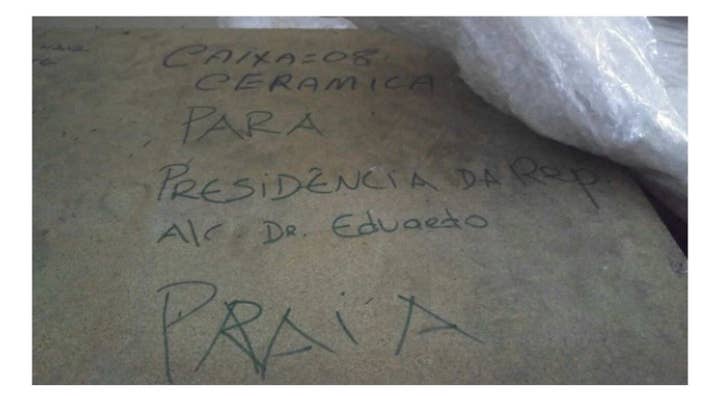 CAIXA=08.
CERAMICA
PARA
PRESIDÊNCIA DA Rep.
A/C. DR. Eduardo
PRAIA